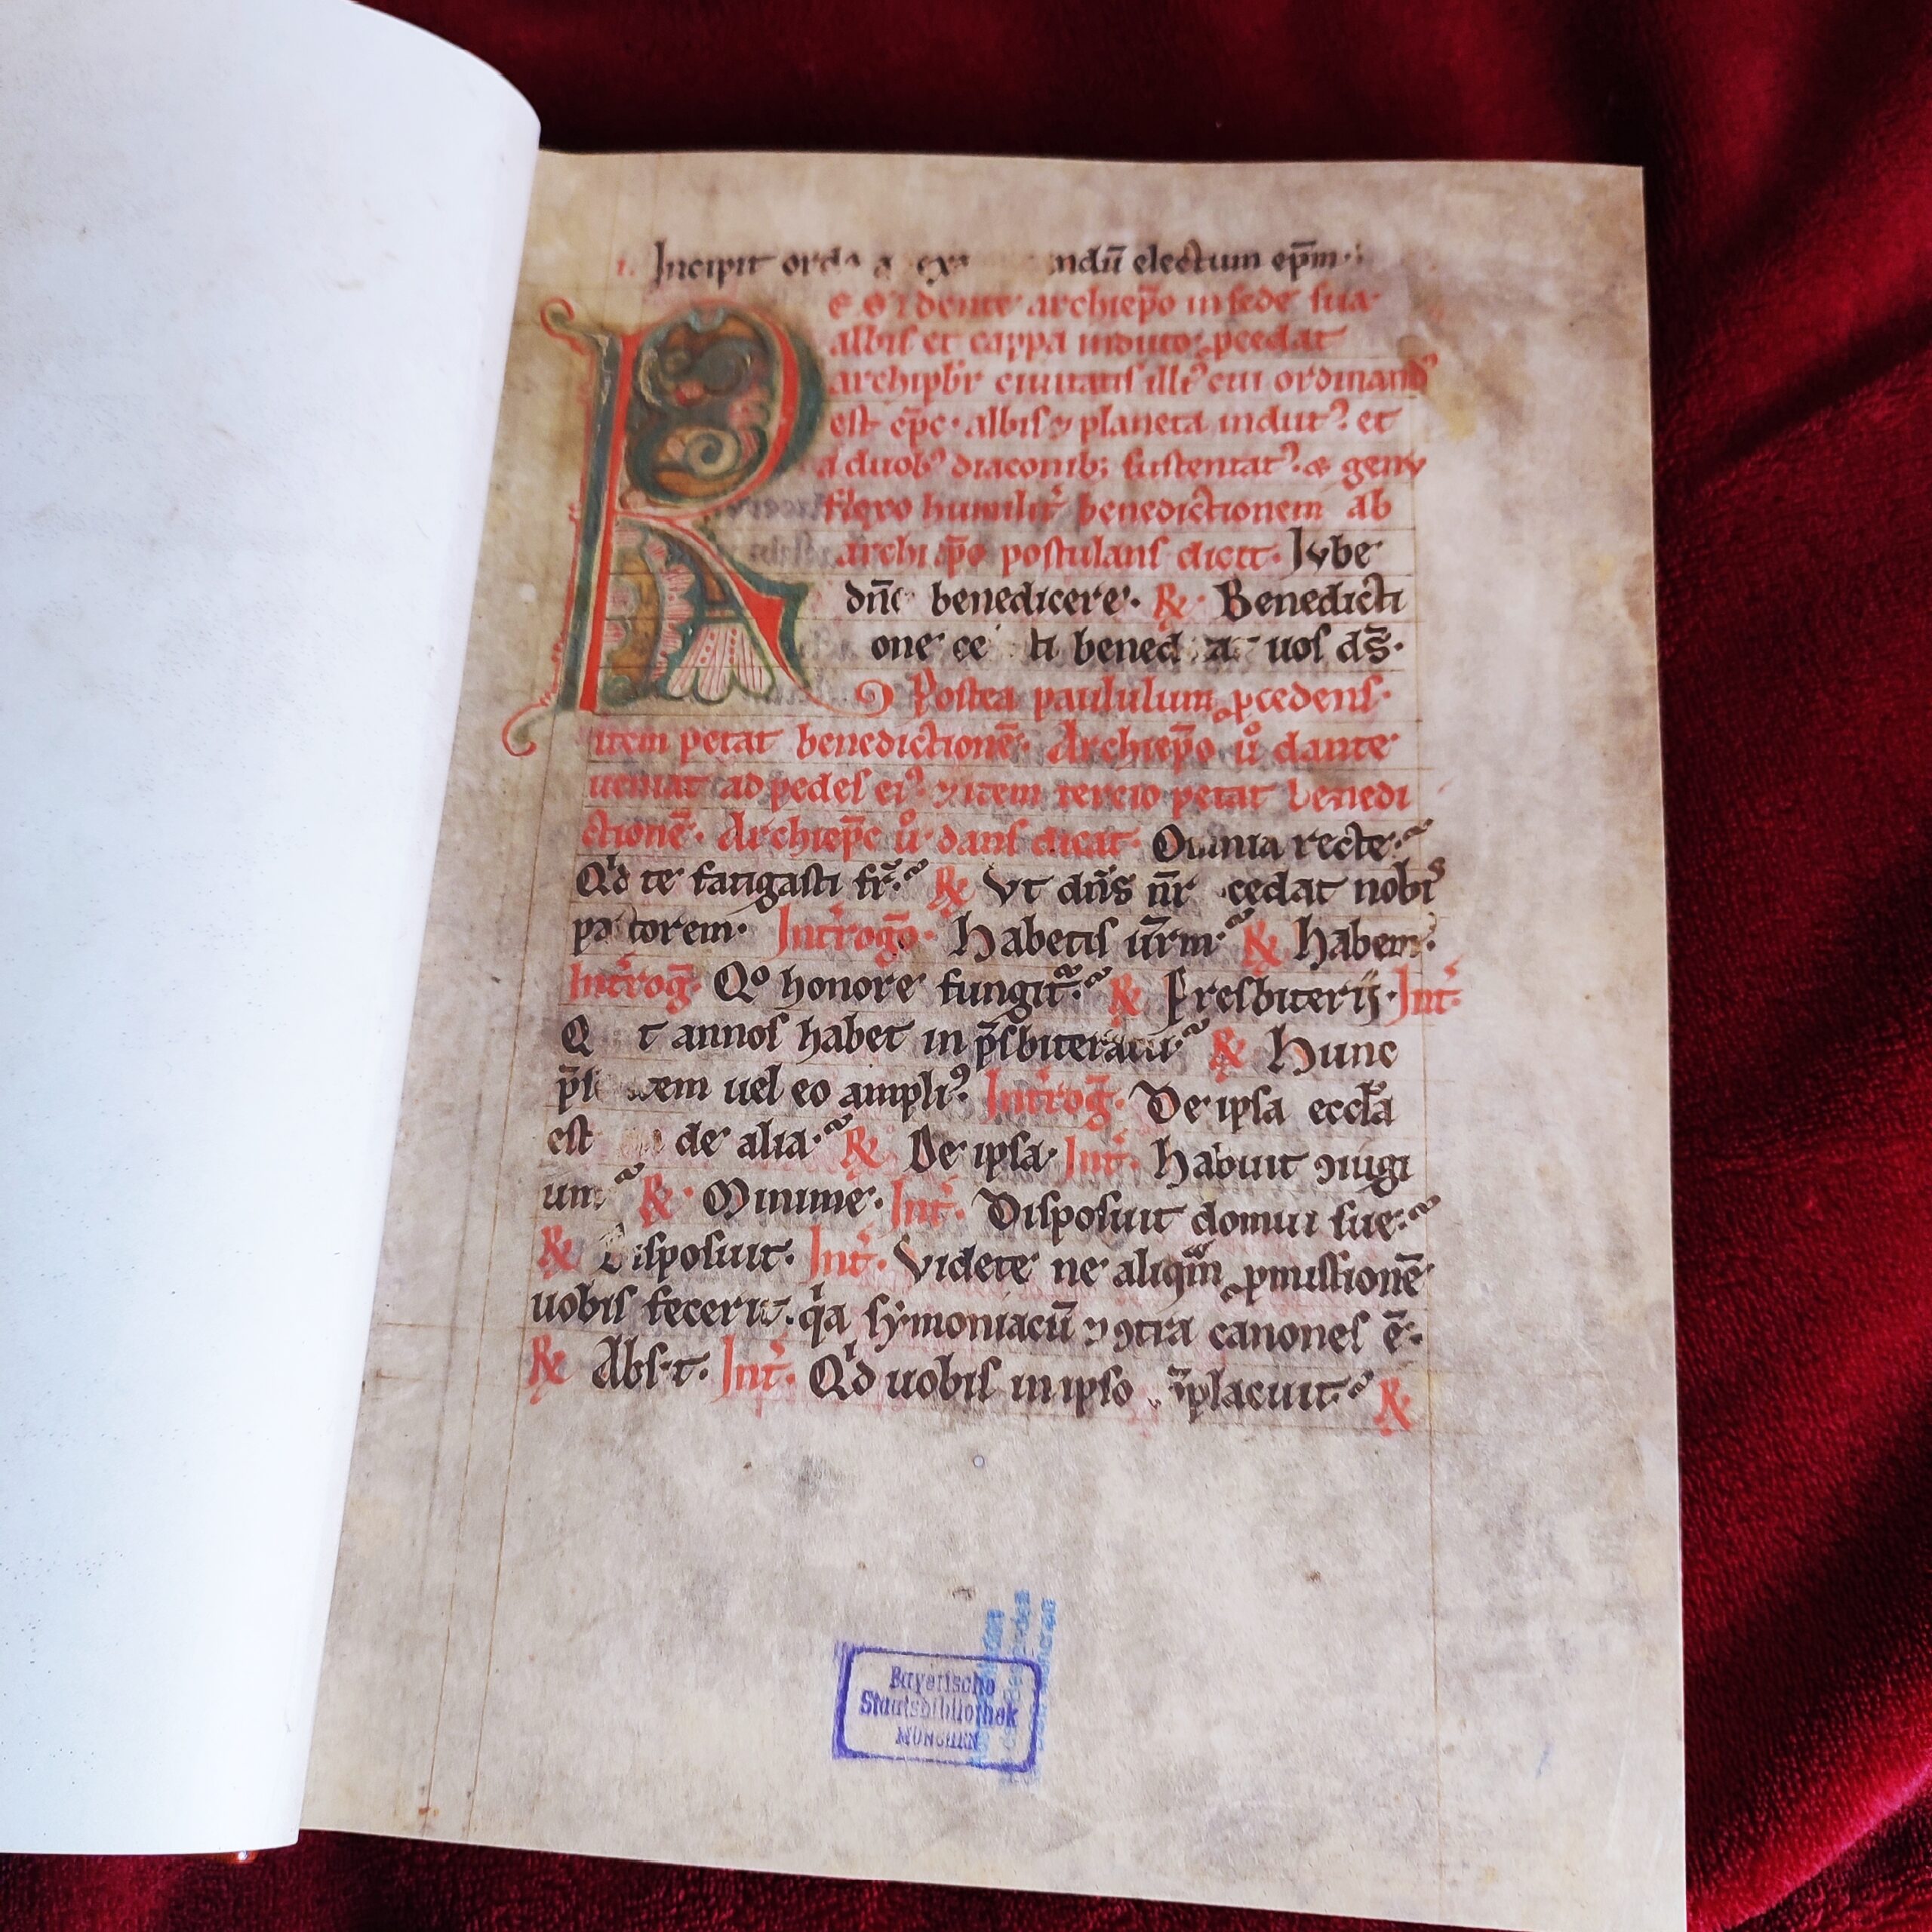 1. Incipit ordo a exa ndū electum ep̄m·
R esidente archiep̄o in sede sua·
albis et cappa induto· ꝓcedat
archipb̄r ciuitatis illiꝰ cui ordinandꝰ
est ep̄c· albis ⁊ planeta indutꝰ et
a duobꝰ diaconib; sustentatꝰ· & genu
flexo humilit̓ benedictionem ab
archiep̄o postulans dicit· Iube
dn̄e benedicere· ℟· Benedicti
one ce ti bened a uos ds̄·
Postea paululum ꝓcedens·
item petat benedictionē· Archiep̄o ů dante
ueniat ad pedes eiꝰ ⁊ item tercio petat benedi
ctionē· Archiep̄c ů dans dicat· Omnia recte·
Qd te fatigasti fr̄· ℟ Vt dn̄s nr̄ cedat nobis
pa torem· Int̓rogō· Habetis ūrm· ℟ Habem·
Int̓rog̅· Qo honore fungit̓· ℟ Presbiterij· Int̓·
Q t annos habet in p̄sbiteratu· ℟ Hunc
em uel eo ampliꝰ Int̓rog̅· De ipsa eccl̄a
est de alia· ℟ De ipsa· Int̓· Habuit ꝯiugi
um· ℟· Minime· Int̓· Disposuit domui sue·
℟ Disposuit· Int̓· Videte ne aliqm̄ ꝓmissionē
uobis fecerit· qa symoniacū ⁊ ꝯtra canones ē·
℟ Absit· Int̓· Qd uobis in ipso placuit· ℟
Bayerische
Staatsbibliothek
MÜNCHEN